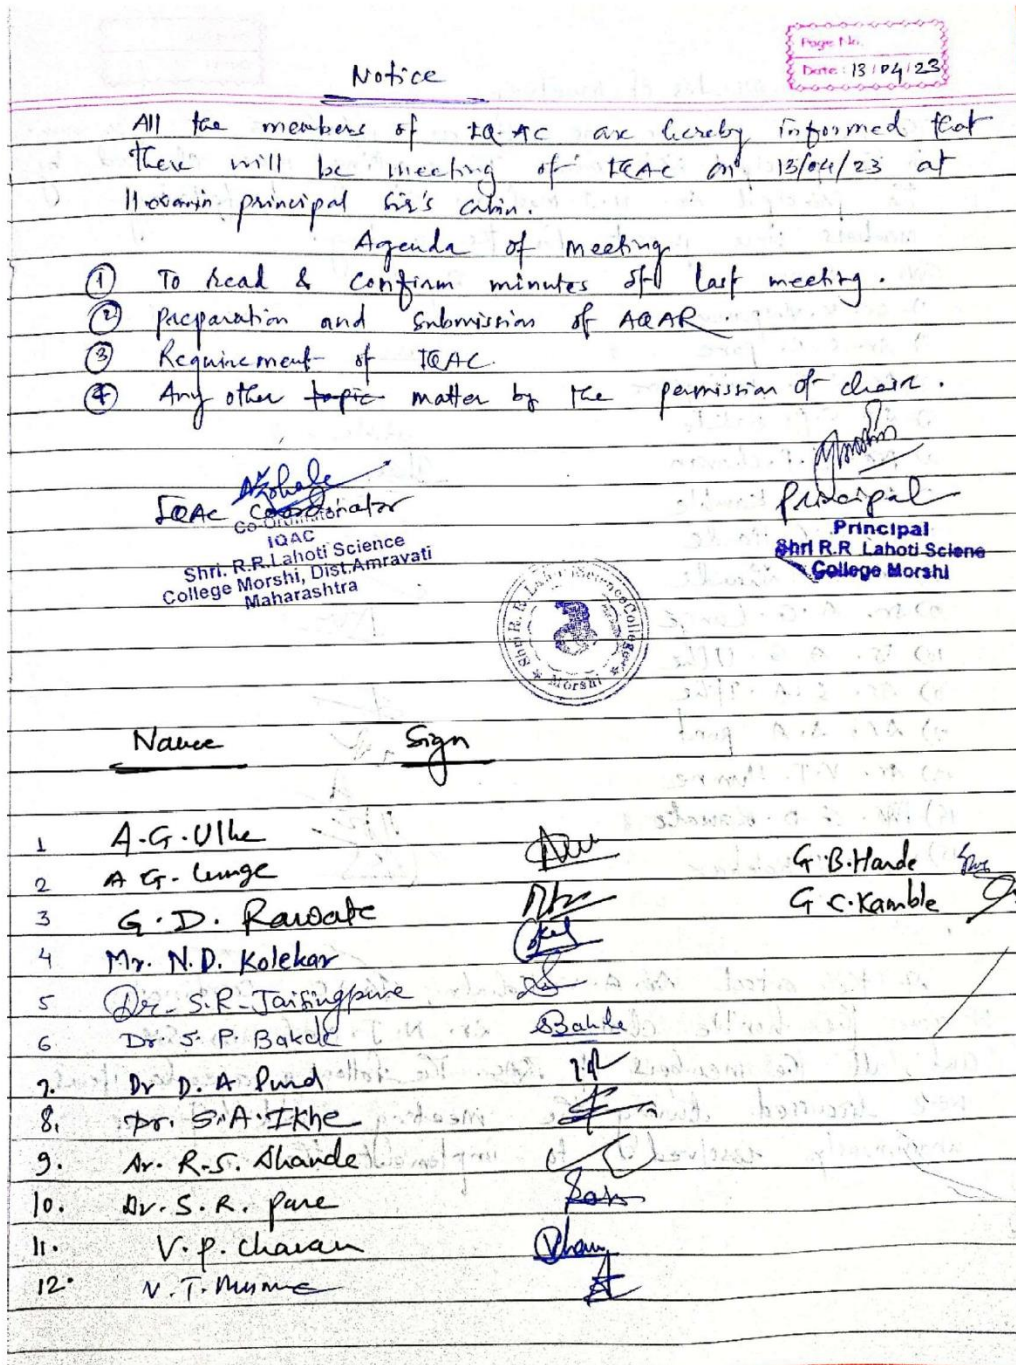 Page No.
Date: 13/04/23
Notice
All the members of IQAC are hereby informed that
there will be meeting of IQAC on 13/04/23 at
principal sir's cabin.
Agenda of meeting
① To read & confirm minutes of last meeting.
② preparation and submission of AQAR
③ Requirement of IQAC.
④ Any other topic matter by the permission of chair.
IQAC Coordinator
Co-Ordinator
IQAC
Shri. R.R.Lahoti Science
College Morshi, Dist.Amravati
Maharashtra
Principal
Principal
Shri R.R Lahoti Sciene
College Morshi
Shri R. R. Lahoti Science College
Morshi
Name Sign
1 A.G.Ulhe
2 A G. Lunge G.B.Hande
3 G.D. Rawate G C.Kamble
4 Mr. N.D. Kolekar
5 Dr. S.R. Jaisingpure
6 Dr. S. P. Bakde SBakde
7. Dr D. A Pund
8. Dr. S.A.Ikhe
9. Dr. R.S. Dhande
10. Dr. S. R. Pare
11. V.P. Chavan
12. V.T.